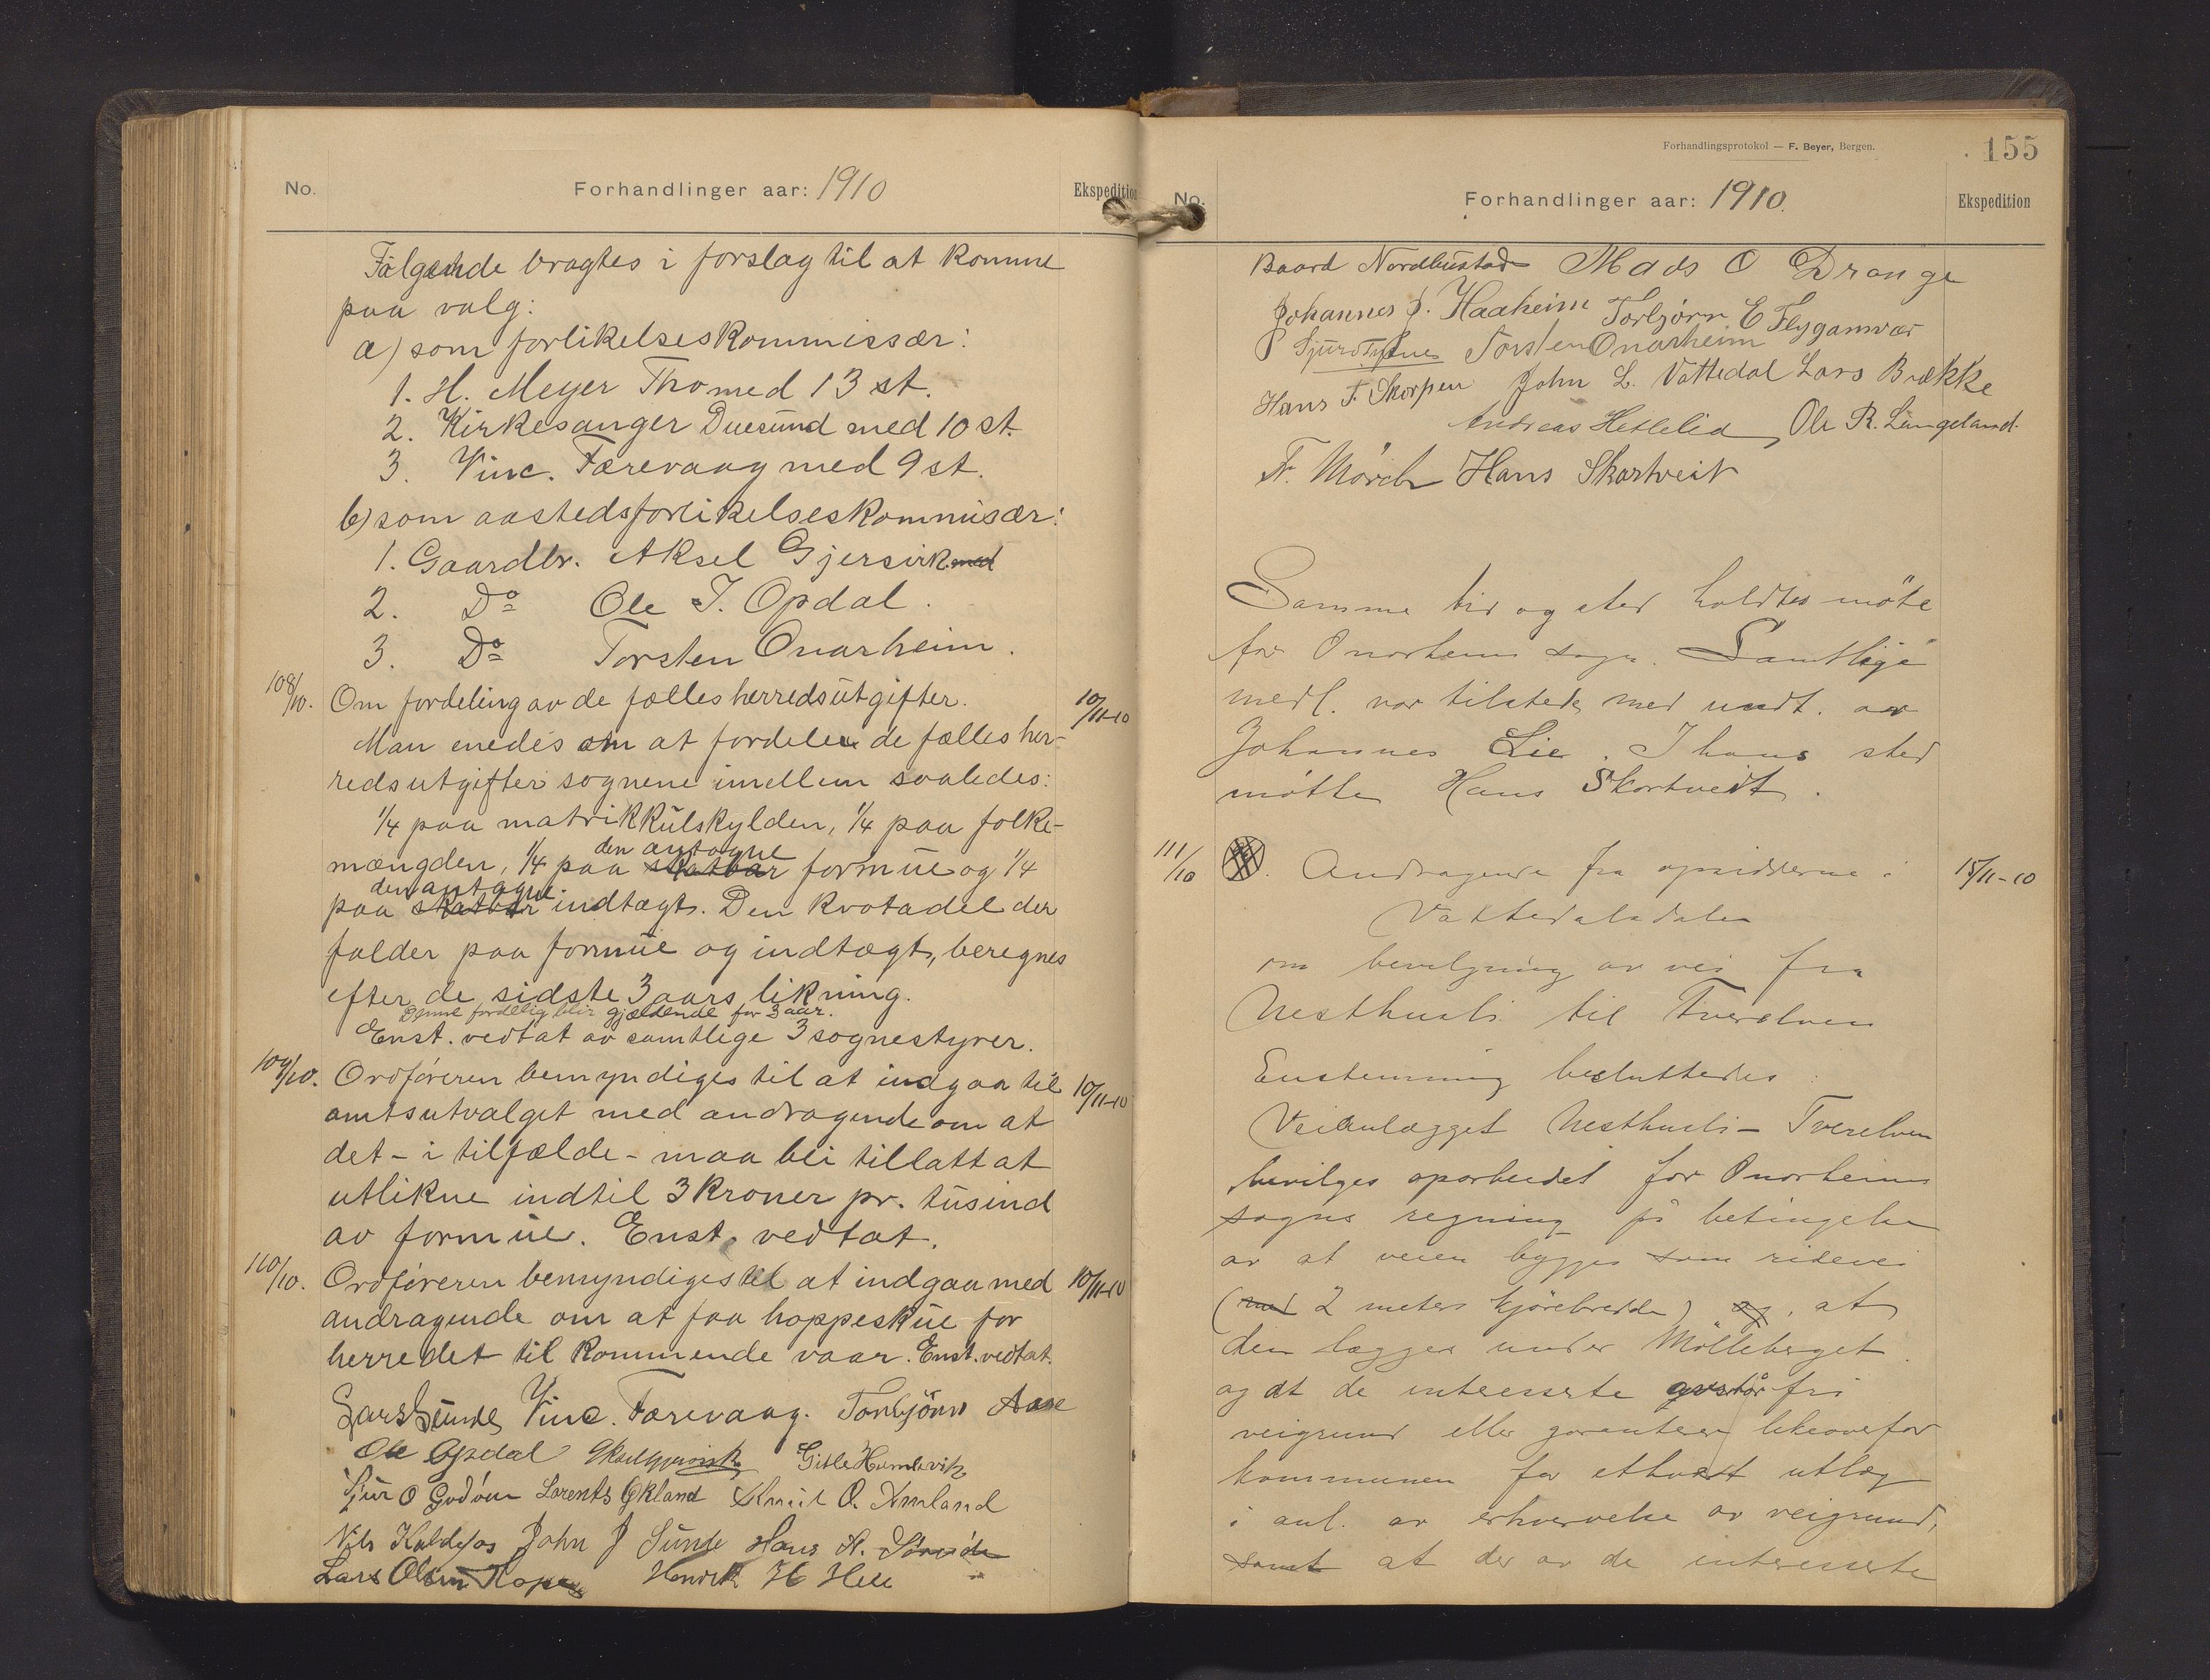 No.
Forhandlinger aar: 1910
Ekspedition
Følgende bragtes i forslag til at komme
paa valg:
a) som forlikelseskommissær:
1. H. Meyer Thomed 13 st.
2. Kirkesanger Duesund med 10 st.
3. Vinc. Færevaag med 9 st.
b) som aastedsforlikelseskommisær:
1. Gaardbr. Aksel Gjersvik med
2. Do Ole T. Opdal.
3. Do Torsten Onarheim.
108/10. Om fordeling av de fælles herredsutgifter. 10/11-10
Man enedes om at fordele de fælles her-
redsutgifter sognene imellem saaledes:
1/4 paa matrikkulskylden, 1/4 paa folke-
den antagne
mængden, 1/4 paa skatbar formue og 1/4
den antagne
paa skatbar indtægt. Den kvotadel der
falder paa formue og indtægt, beregnes
efter de sidste 3 aars likning.
Denne fordelig blir gjældende for 3 aar.
Enst. vedtat av samtlige 3 sognestyrer.
109/10. Ordføreren bemyndiges til at indgaa til 10/11-10
amtsutvalget med andragende om at
det - i tilfælde - maa bli tillatt at
utlikne indtil 3 kroner pr. tusind
av formue. Enst. vedtat.
110/10. Ordføreren bemyndiges til at indgaa med 10/11-10
andragende om at faa hoppeskue for
herredet til kommende vaar. Enst. vedtat.
Lars Sunde Vinc. Færevaag. Torbjörn Aase
Ole Opdal Gitle Humlevik
Sjur O Godöen Lorents Ökland Knut O. Amland
Nils Koldefos John J Sunde Hans H.
Lars Olsen Hope Henrik H Hell
Forhandlingsprotokol — F. Beyer, Bergen.
155
No.
Forhandlinger aar: 1910.
Ekspedition
Baard Nordhustad Mads O Drange
Johannes J. Haaheim Torbjørn E Flyganvær
Torsten Onarheim
Hans T. Skorpen John L. Vattedal Lars Brække
Andreas Hetlelid, Ole R. Langeland.
Fr. Mörch Hans Skartveit
Samme tid og sted holdtes möte
for Onarheim sogn. Samtlige
medl. var tilstede med undt. av
Johannes Lie. I hans sted
mötte Hans Skortveidt.
111/10 Andragende fra opsidderne i 15/11-10
Vattedalsdalen
om bevilgning av vei fra
Nesthusli til Tverelven
Enstemmig besluttedes:
Veianlægget Nesthusli - Tverelven
bevilges oparbeidet for Onarheim
sogns regning på betingelse
av at veien bygges som ridevei
(med 2 meters kjörebredde) og, at
den lægges under Mölleberget
og at de interesserte avstår fri
veigrund eller garanterer likeoverfor
kommunen for ethvert utlæg
i anl. av erhvervelse av veigrund,
samt at der av de interesserte